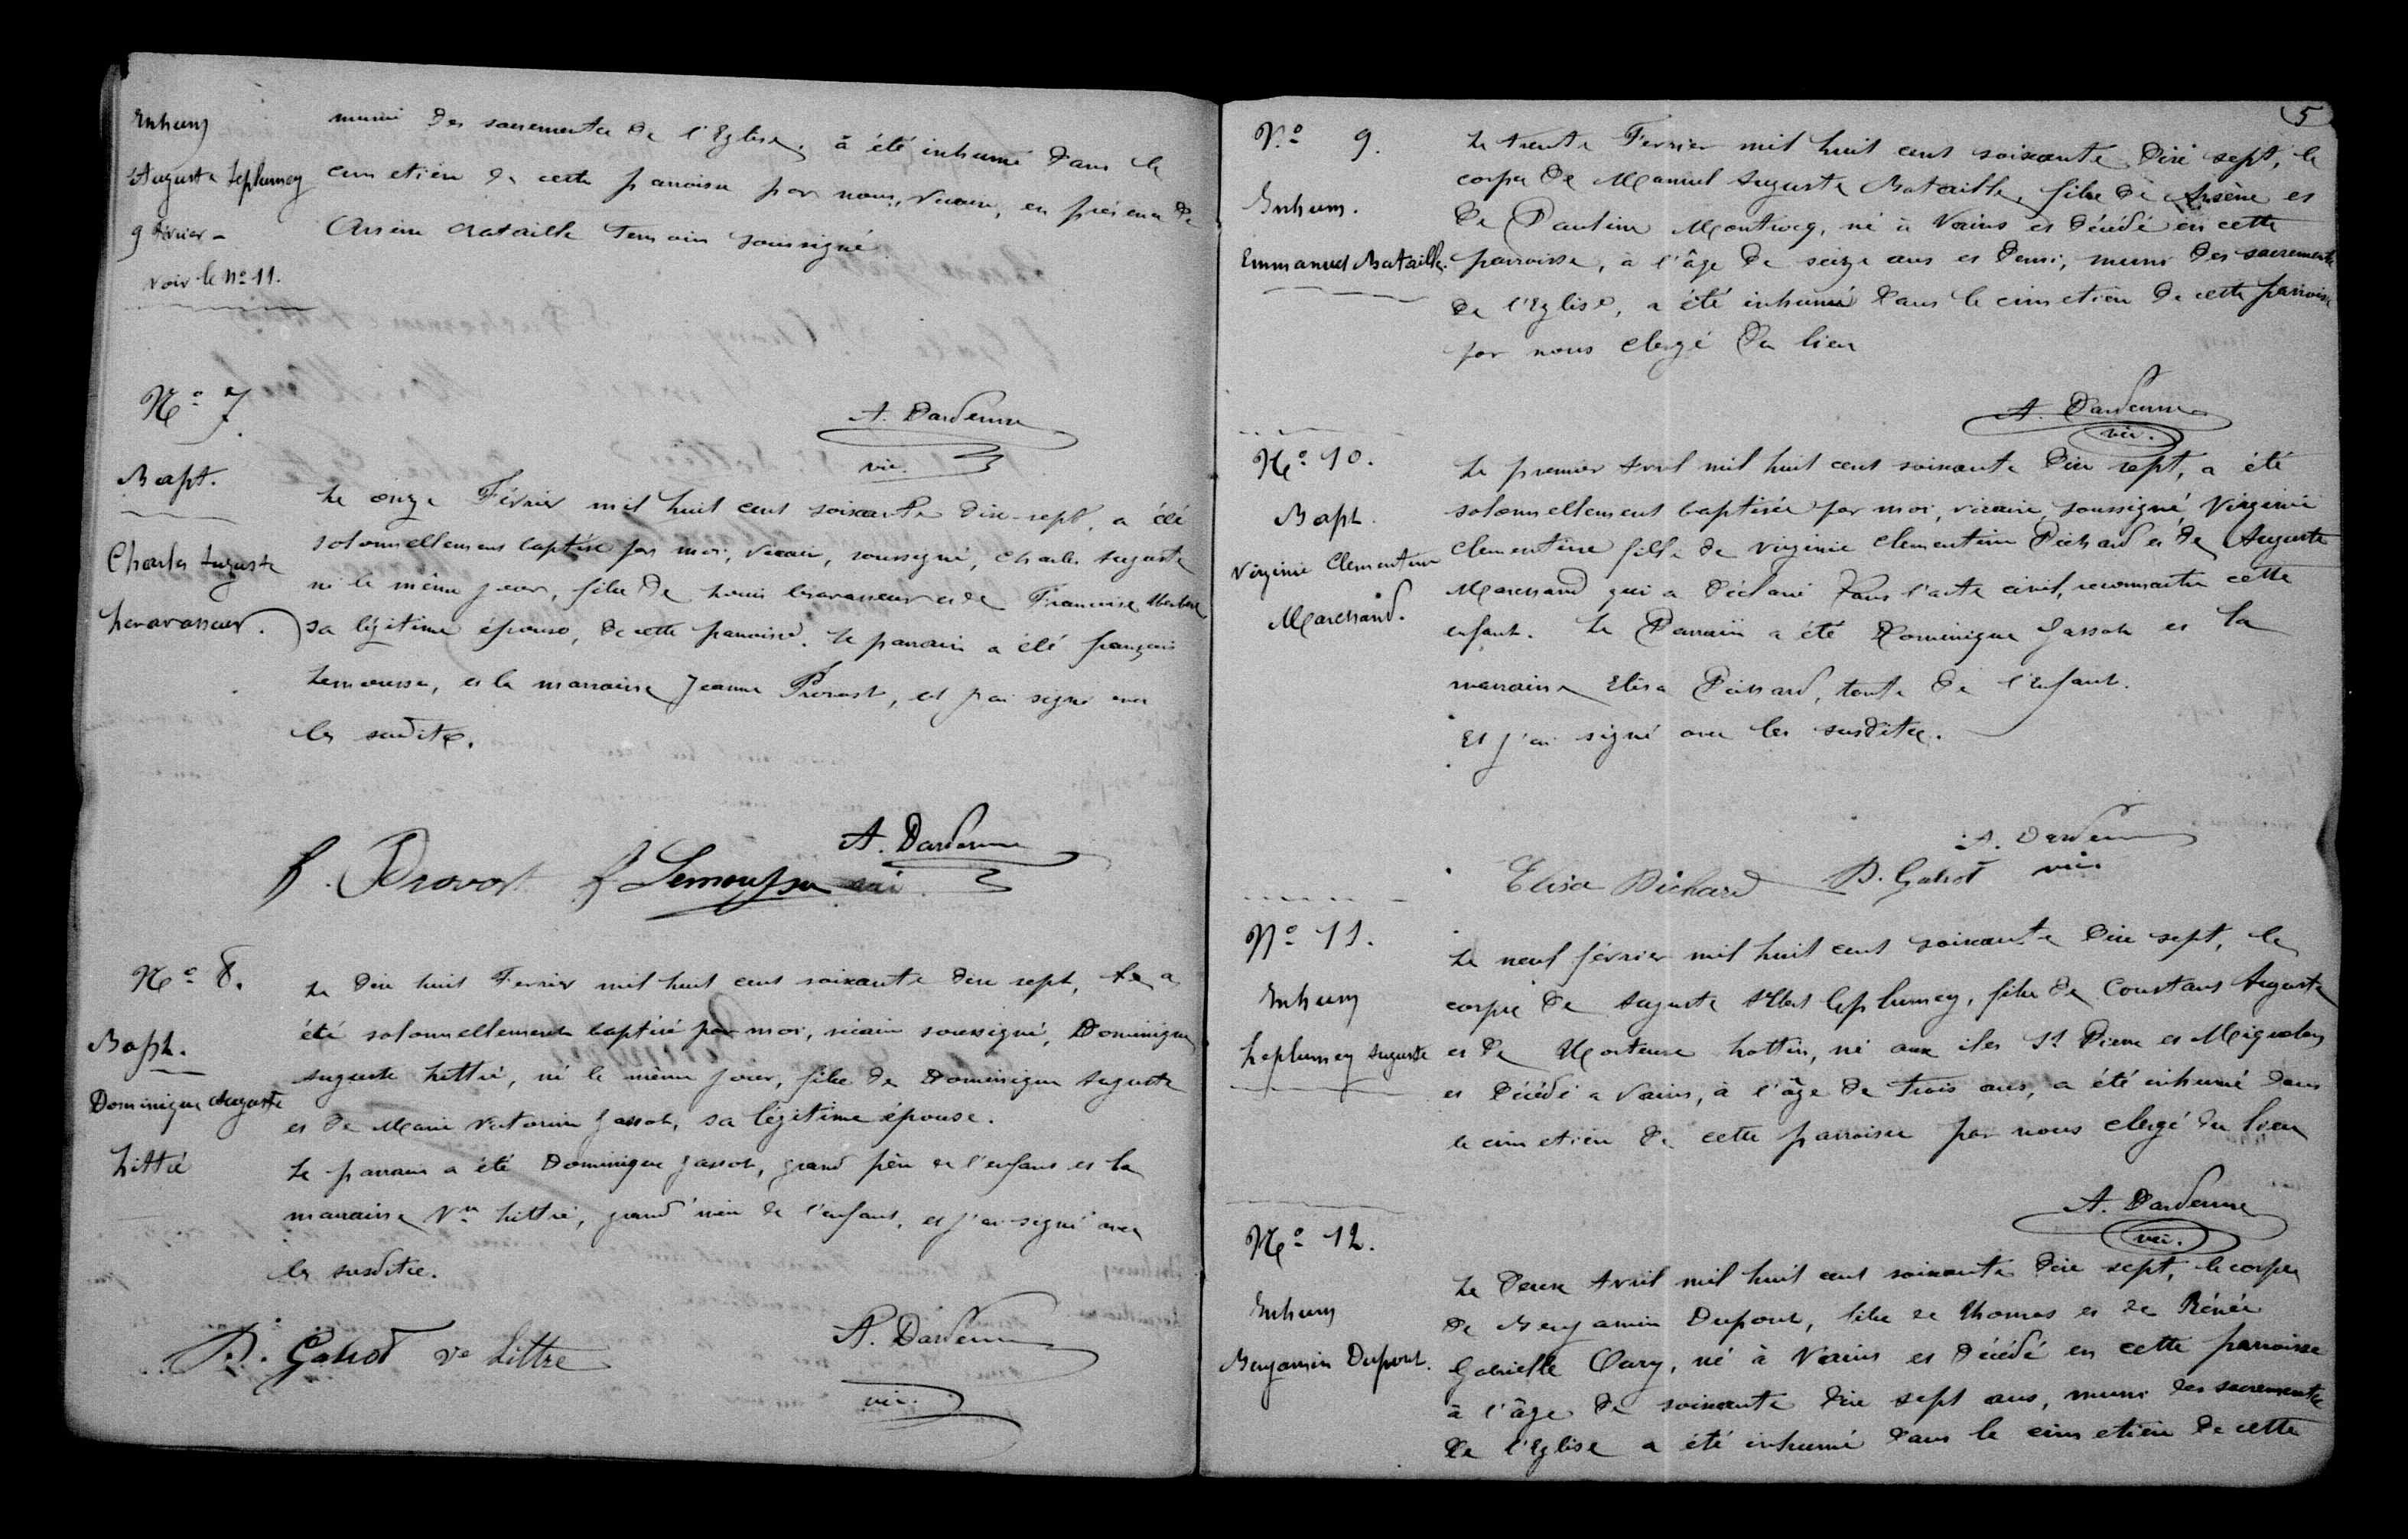 Inhum
Auguste Leplumey
9 février -
voir le No 11.
muni des sacrements de l'Eglise, a été inhumé dans le
cimetière de cette paroisse par nous, vicaire, en présence de
Arsène Bataille témoin soussigné
A. Dardenne
vic.
No 7
Bapt.
Charles Auguste
Levavasseur.
Le onze Février mil huit cent soixante dix-sept, a été
solennellement baptisé par moi, vicaire, soussigné, Charles Auguste
né le même jour, fils de Louis Levavasseur et de Francoise
sa légitime épouse, de cette paroisse. Le parrain a été françois
Lemousse, et la marraine Jeanne Provost, et j'ai signé avec
les susdits.
Provost f Lemousse A. Dardenne
vic
No 8.
Bapt.
Dominique Auguste
Littré
Le dix huit Fevrier mil huit cent soixante dix sept, a
été solennellement baptisé par moi, vicaire soussigné, Dominique
Auguste Littré, né le même jour, fils de Dominique Auguste
et de Marie Victorine Gassot, sa légitime épouse.
Le parrain a été Dominique Gassot, grand père de l'enfant et la
marraine Vve Littré, grand'mère de l'enfant, et j'ai signé avec
les susdits.
D. Gahot Ve Littre A. Dardenne
vic.
5
No 9.
Inhum.
Emmanuel Bataille.
Le trente Fevrier mil huit cent soixante dix sept, le
corps de Manuel Auguste Bataille, fils de Arsène et
de Pauline Montroeg, né à Vains et décédé en cette
parroisse, à l'âge de seize ans et demi, muni des sacrements
de l'Eglise, a été inhumé dans le cimetière de cette parroisse
par nous clergé du lieu
A. Dardenne
vic.
No 10.
Bapt.
Virginie Clementine
Marchand.
Le premier Avril mil huit cent soixante dix sept, a été
solennellement baptisée par moi, vicaire, soussigné Virginie
Clementine fille de Virginie Clementine Pichard et de Auguste
Marchand qui a déclaré dans l'acte civil, reconnaitre cette
enfant. Le Parrain a été Dominique Gassot et la
marraine Elisa Pichard, tante de l'Enfant.
Et j'ai signé avec les susdits.
A. Dardenne
Elisa Pichard D. Gahot vic
No 11.
Inhum
Leplumey Auguste
Le neuf février mil huit cent soixante dix sept, le
corps de Auguste Albert Leplumey, fils de Constant Auguste
et de Hortense Lottin, né aux iles St Pierre et Miquelon
et décédé a Vains, à l'âge de trois ans, a été inhumé dans
le cimetière de cette parroisse par nous clergé du lieu
A. Dardenne
vic.
No 12.
Inhum
Benjamin Dupont.
Le deux Avril mil huit cent soixante dix sept, le corps
de Benjamin Dupont, fils de Thomas et de Rénée
Gabrielle Oury, né à Vains et décédé en cette parroisse
à l'âge de soixante dix sept ans, muni des sacrements
de l'Eglise a été inhumé dans le cimetière de cette